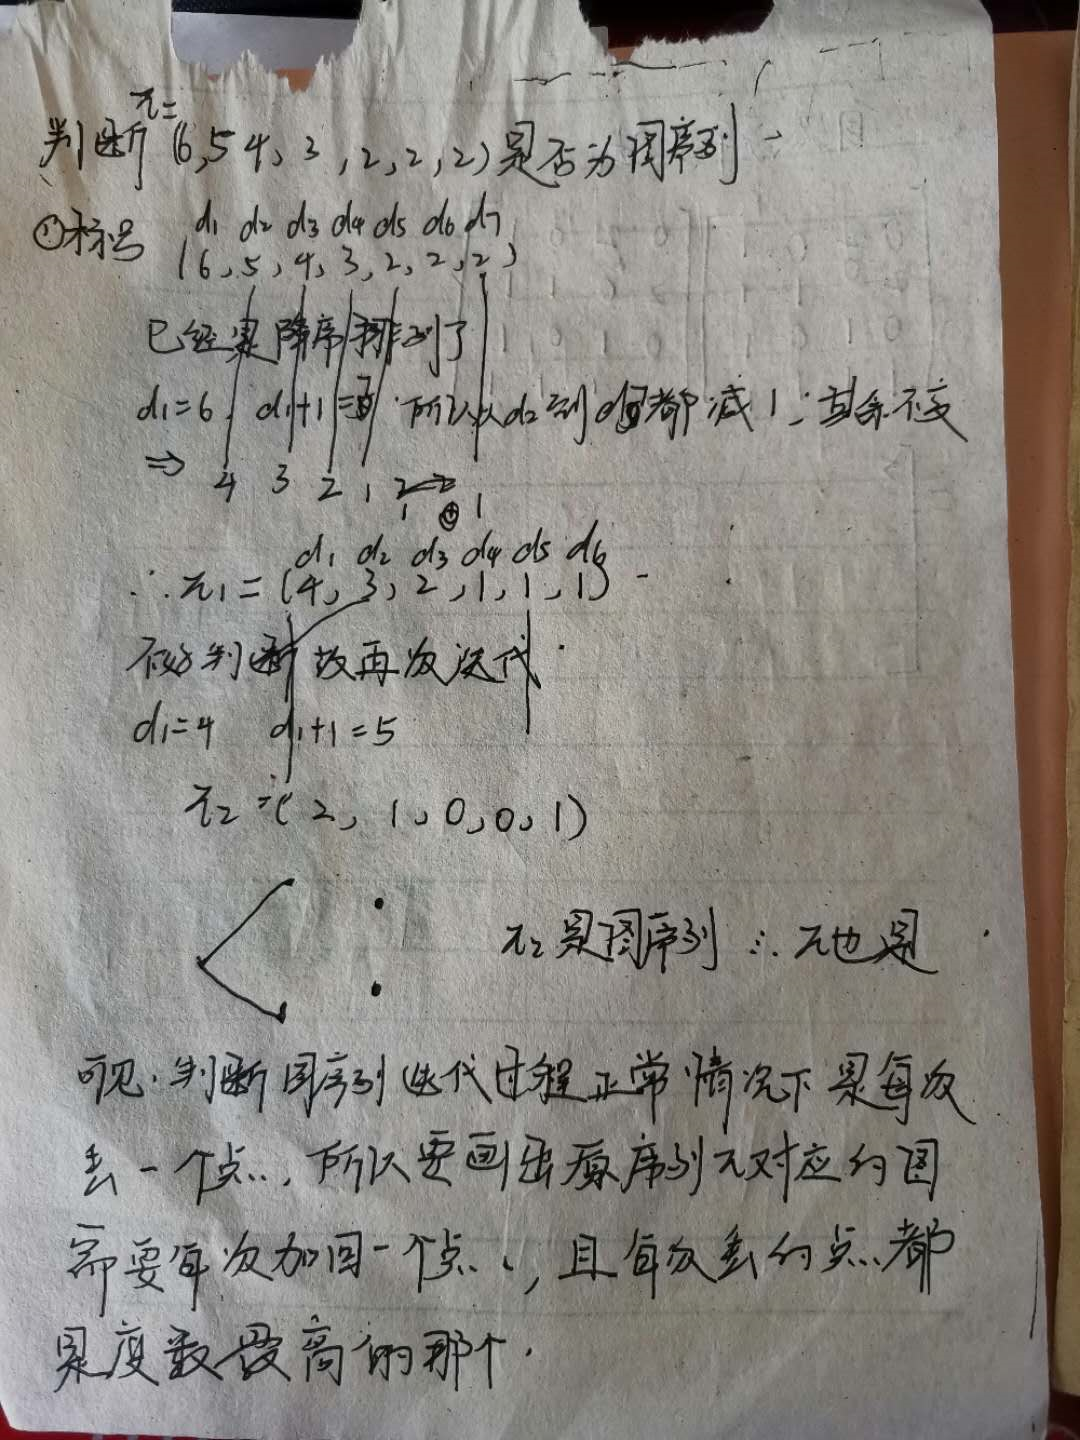 π=
判断(6,5 4,3,2,2,2)是否为图序列
①标号 d1 d2 d3 d4 d5 d6 d7
(6,5,4,3,2,2,2)
已经是降序排列了
d1=6, d1+1= 所以从d2到 都减1,其余不变
⇒ 4 3 2 1 2
1 1
d1 d2 d3 d4 d5 d6
∴π1=(4,3,2,1,1,1)
不好判断故再次迭代
d1=4 d1+1=5
π2=(2,1,0,0,1)
π2是图序列∴π也是
可见,判断图序列迭代过程正常情况下是每次
丢一个点,所以要画出原序列π对应的图
需要每次加回一个点,且每次丢的点都
是度数最高的那个.